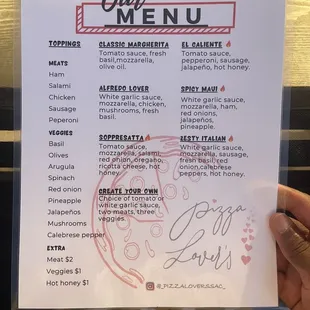 Our
MENU
TOPPINGS
MEATS
Ham
Salami
Chicken
Sausage
Peperoni
VEGGIES
Basil
Olives
Arugula
Spinach
Red onion
Pineapple
Jalapeños
Mushrooms
Calebrese pepper
EXTRA
Meat $2
Veggies $1
Hot honey $1
CLASSIC MARGHERITA
Tomato sauce, fresh
basil, mozzarella,
olive oil.
ALFREDO LOVER
White garlic sauce,
mozzarella, chicken,
mushrooms, fresh
basil.
SOPPRESATTA
Tomato sauce,
mozzarella, salami,
red onion, oregano,
ricotta cheese, hot
honey.
CREATE YOUR OWN
Choice of tomato or
white garlic sauce,
two meats, three
veggies.
EL CALIENTE
Tomato sauce,
pepperoni, sausage,
jalapeño, hot honey.
SPICY MAUI
White garlic sauce,
mozzarella, ham,
red onions,
jalapenos,
pineapple.
ZESTY ITALIAN
White garlic sauce,
mozzarella, sausage,
fresh basil, red
onion, calebrese
peppers, hot honey.
Pizza
Lover's
@_PIZZALOVERSSAC_